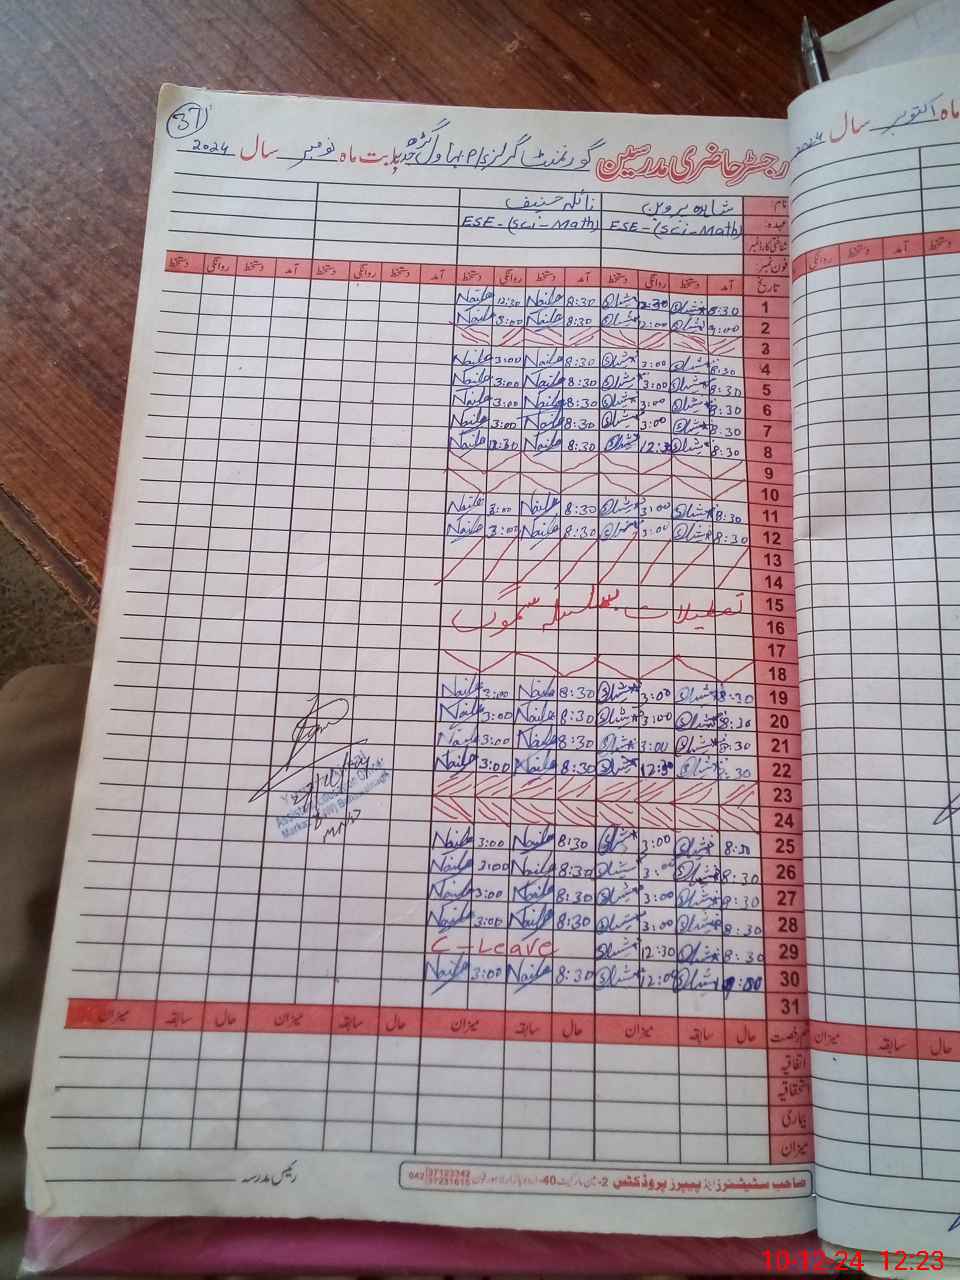 37
رجسٹر حاضری مدرسین گورنمنٹ گرلز بابت ماہ نومبر سال 2024
نام: شاہدہ پروین نائلہ حنیف
عہدہ: ESE-(Sci-Math) ESE-(Sci-Math)
شناختی کارڈ نمبر
فون نمبر:
تاریخ آمد دستخط روانگی دستخط آمد دستخط روانگی دستخط آمد دستخط روانگی دستخط آمد دستخط روانگی دستخط
1 8:30 12:30 8:30 Naila 12:30 Naila
2 9:00 2:00 8:30 Naila 3:00 Naila
3
4 8:30 3:00 8:30 Naila 3:00 Naila
5 8:30 3:00 8:30 Naila 3:00 Naila
6 8:30 3:00 8:30 Naila 3:00 Naila
7 8:30 3:00 8:30 Naila 3:00 Naila
8 8:30 12:30 8:30 Naila 12:30 Naila
9
10
11 8:30 3:00 8:30 Naila 3:00 Naila
12 8:30 3:00 8:30 Naila 3:00 Naila
13
14
15 تعطیلات بسلسلہ سموگ
16
17
18
19 8:30 3:00 8:30 Naila 3:00 Naila
20 8:30 3:00 8:30 Naila 3:00 Naila
21 8:30 3:00 8:30 Naila 3:00 Naila
22 8:30 12:30 8:30 Naila 3:00 Naila
23
24
25 8:30 3:00 8:30 Naila 3:00 Naila
26 8:30 3:00 8:30 Naila 3:00 Naila
27 8:30 3:00 8:30 Naila 3:00 Naila
28 8:30 3:00 8:30 Naila 3:00 Naila
29 8:30 12:30 C-Leave
30 9:00 12:00 8:30 Naila 3:00 Naila
31
Assistant Education Officer
Markaz
قسم رخصت حال سابقہ میزان حال سابقہ میزان حال سابقہ میزان حال سابقہ میزان
اتفاقیہ
استحقاقیہ
بیماری
میزان
رئیس مدرسہ
صاحب سٹیشنرز اینڈ پیپرز پروڈکٹس 2- 40-اردو بازار لاہور فون 042 37123342 37231615
ماہ اکتوبر سال 2024
آمد دستخط روانگی
حال سابقہ میزان
10-12-24 12:23